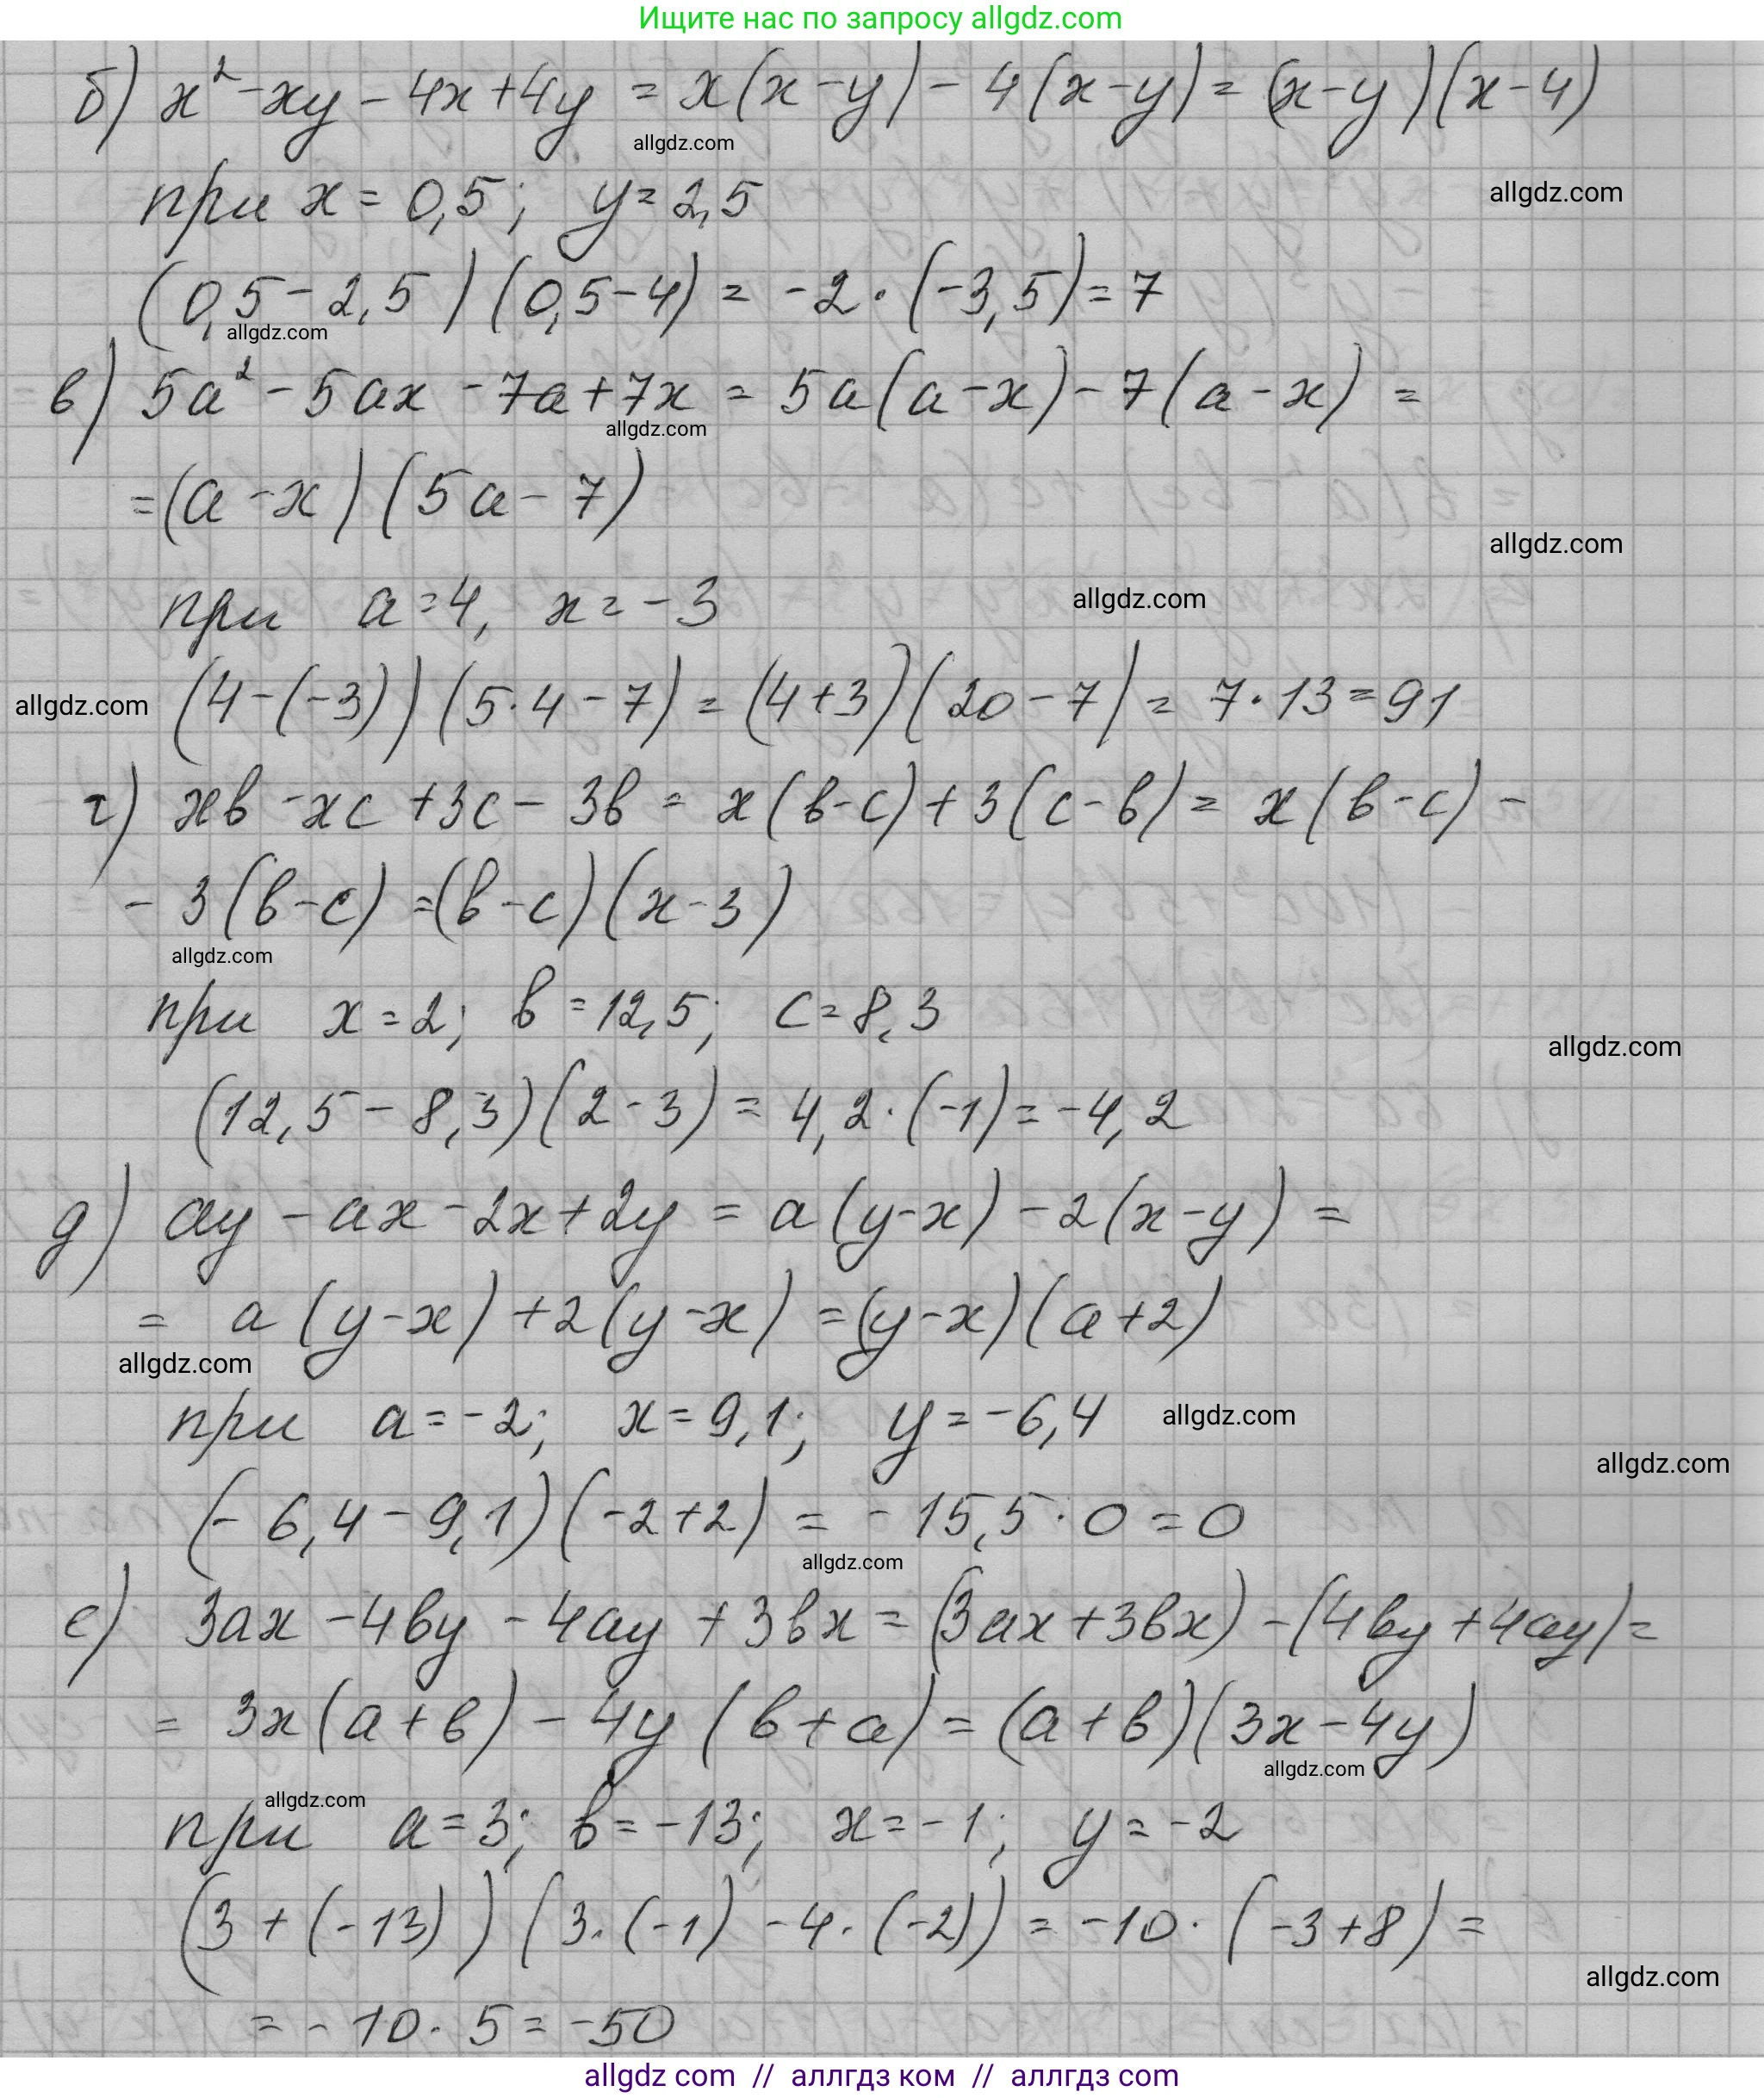 Ищите нас по запросу allgdz.com
б) x² - xy - 4x + 4y = x(x - y) - 4(x - y) = (x - y)(x - 4)
allgdz.com
при x = 0,5; y = 2,5
allgdz.com
(0,5 - 2,5)(0,5 - 4) = -2 · (-3,5) = 7
allgdz.com
в) 5a² - 5ax - 7a + 7x = 5a(a - x) - 7(a - x) =
allgdz.com
= (a - x)(5a - 7)
allgdz.com
при a = 4, x = -3
allgdz.com
(4 - (-3))(5·4 - 7) = (4 + 3)(20 - 7) = 7 · 13 = 91
allgdz.com
г) xb - xc + 3c - 3b = x(b - c) + 3(c - b) = x(b - c) -
- 3(b - c) = (b - c)(x - 3)
allgdz.com
при x = 2; b = 12,5; c = 8,3
allgdz.com
(12,5 - 8,3)(2 - 3) = 4,2 · (-1) = -4,2
д) ay - ax - 2x + 2y = a(y - x) - 2(x - y) =
= a(y - x) + 2(y - x) = (y - x)(a + 2)
allgdz.com
при a = -2; x = 9,1; y = -6,4
allgdz.com
allgdz.com
(-6,4 - 9,1)(-2 + 2) = -15,5 · 0 = 0
allgdz.com
е) 3ax - 4by - 4ay + 3bx = (3ax + 3bx) - (4by + 4ay) =
= 3x(a + b) - 4y(b + a) = (a + b)(3x - 4y)
allgdz.com
allgdz.com
при a = 3; b = -13; x = -1; y = -2
(3 + (-13))(3·(-1) - 4·(-2)) = -10 · (-3 + 8) =
allgdz.com
= -10 · 5 = -50
allgdz com // аллгдз ком // аллгдз com